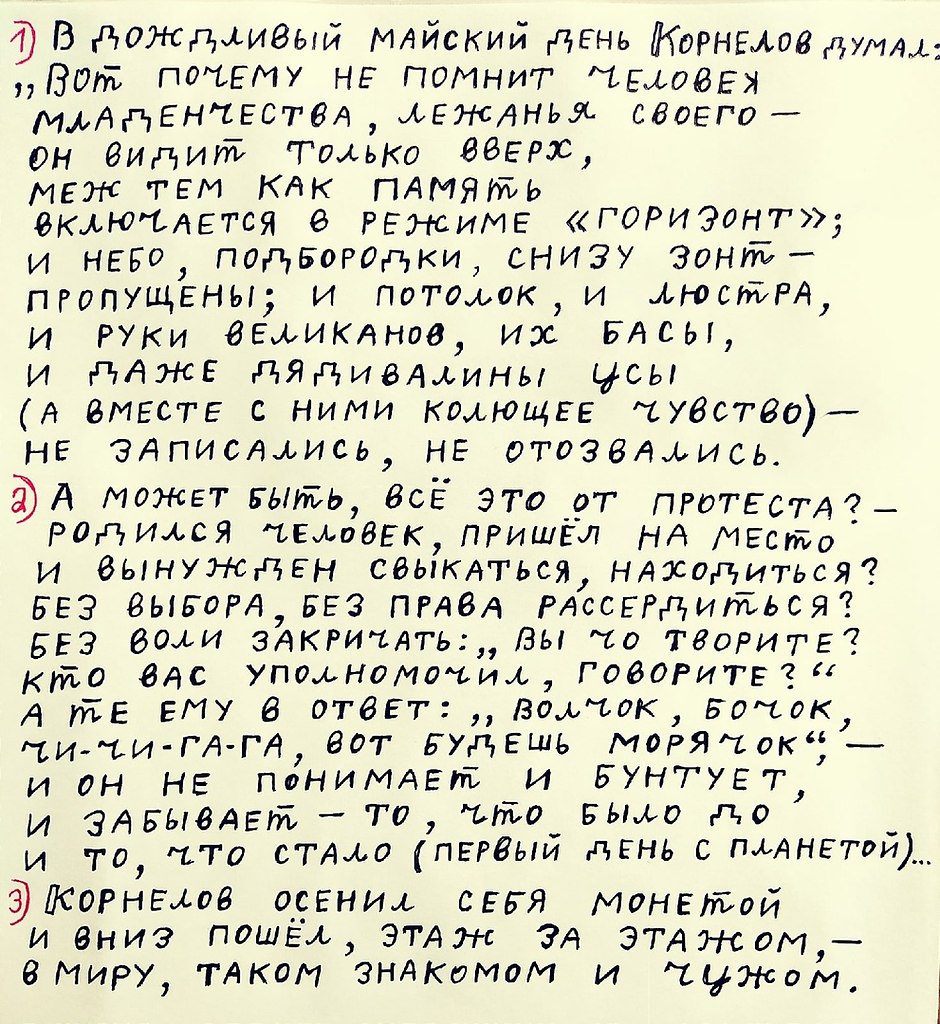 1) В ДОЖДЛИВЫЙ МАЙСКИЙ ДЕНЬ КОРНЕЛОВ ДУМАЛ:
„ВОТ ПОЧЕМУ НЕ ПОМНИТ ЧЕЛОВЕК
МЛАДЕНЧЕСТВА, ЛЕЖАНЬЯ СВОЕГО —
ОН ВИДИТ ТОЛЬКО ВВЕРХ,
МЕЖ ТЕМ КАК ПАМЯТЬ
ВКЛЮЧАЕТСЯ В РЕЖИМЕ «ГОРИЗОНТ»;
И НЕБО, ПОДБОРОДКИ, СНИЗУ ЗОНТ —
ПРОПУЩЕНЫ; И ПОТОЛОК, И ЛЮСТРА,
И РУКИ ВЕЛИКАНОВ, ИХ БАСЫ,
И ДАЖЕ ДЯДИВАЛИНЫ УСЫ
(А ВМЕСТЕ С НИМИ КОЛЮЩЕЕ ЧУВСТВО) —
НЕ ЗАПИСАЛИСЬ, НЕ ОТОЗВАЛИСЬ.
2) А МОЖЕТ БЫТЬ, ВСЁ ЭТО ОТ ПРОТЕСТА? —
РОДИЛСЯ ЧЕЛОВЕК, ПРИШЁЛ НА МЕСТО
И ВЫНУЖДЕН СВЫКАТЬСЯ, НАХОДИТЬСЯ?
БЕЗ ВЫБОРА, БЕЗ ПРАВА РАССЕРДИТЬСЯ?
БЕЗ ВОЛИ ЗАКРИЧАТЬ: „ВЫ ЧО ТВОРИТЕ?
КТО ВАС УПОЛНОМОЧИЛ, ГОВОРИТЕ?“
А ТЕ ЕМУ В ОТВЕТ: „ВОЛЧОК, БОЧОК,
ЧИ-ЧИ-ГА-ГА, ВОТ БУДЕШЬ МОРЯЧОК“, —
И ОН НЕ ПОНИМАЕТ И БУНТУЕТ,
И ЗАБЫВАЕТ — ТО, ЧТО БЫЛО ДО
И ТО, ЧТО СТАЛО (ПЕРВЫЙ ДЕНЬ С ПЛАНЕТОЙ)...
3) КОРНЕЛОВ ОСЕНИЛ СЕБЯ МОНЕТОЙ
И ВНИЗ ПОШЁЛ, ЭТАЖ ЗА ЭТАЖОМ, —
В МИРУ, ТАКОМ ЗНАКОМОМ И ЧУЖОМ.